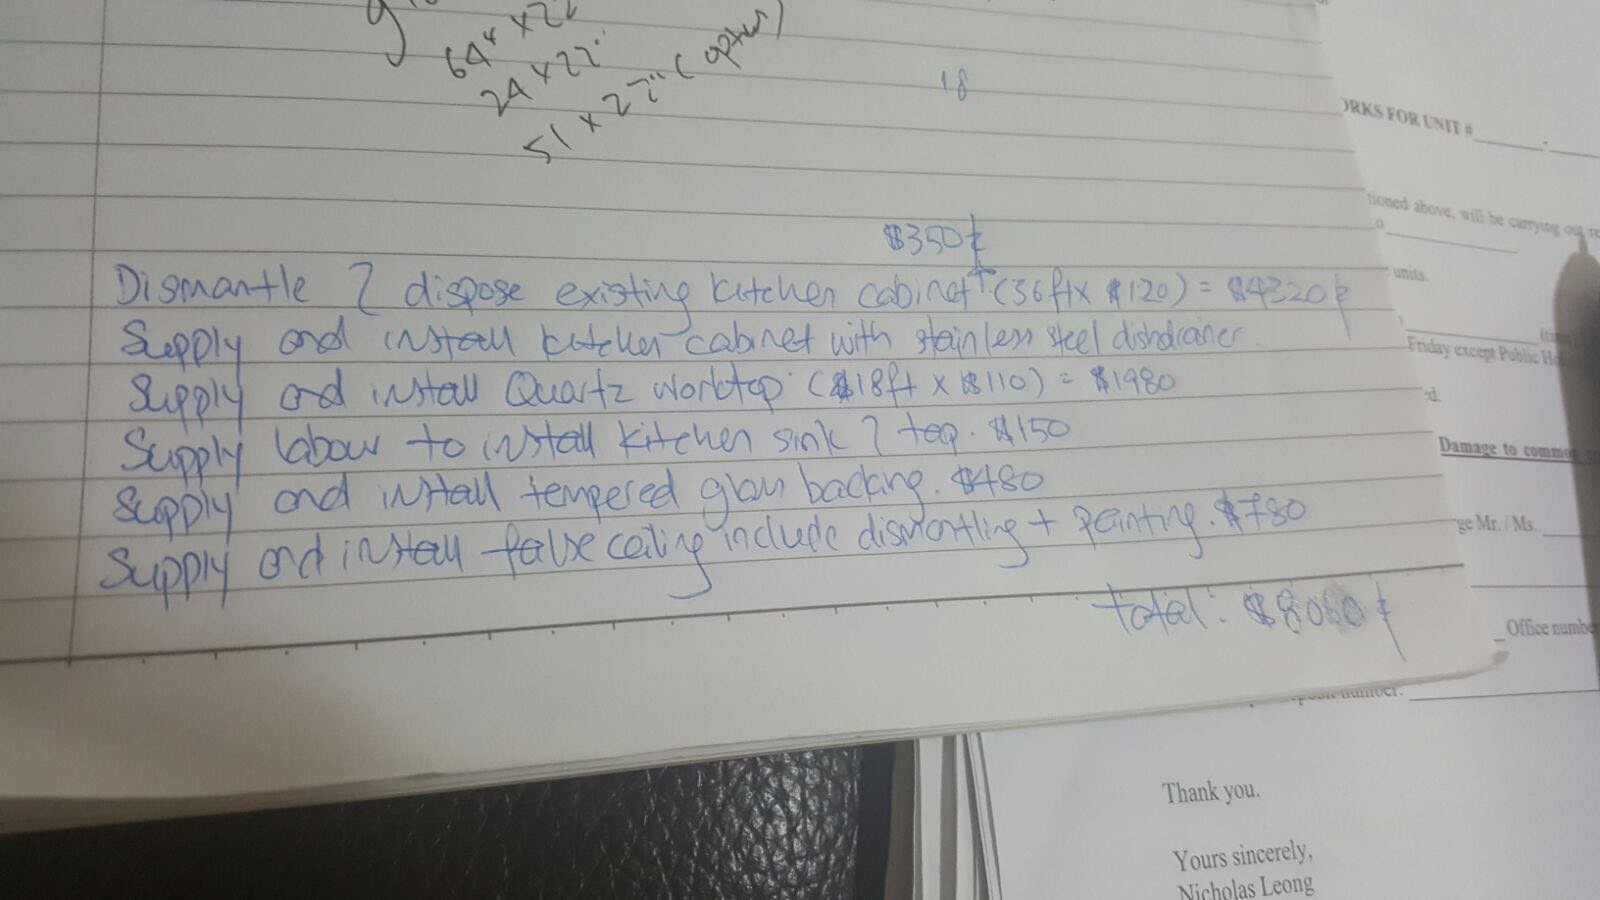 64" x 22
24 x 22"
51 x 22" (
18
$350
Dismantle & dispose existing kitchen cabinet + (36ft x $120) = $4320
Supply and install kitchen cabinet with stainless steel dishdrainer.
Supply and install Quartz worktop. ($18ft x $110) = $1980
Supply labour to install kitchen sink & tap. $150
Supply and install tempered glass backing. $480
Supply and install false ceiling include dismantling + painting. $780
total: $80
ORKS FOR UNIT # -
tioned above, will be carrying out re
units.
Friday except Public Ho
Damage to common
ge Mr. / Ms.
Office numbe
Thank you.
Yours sincerely,
Nicholas Leong